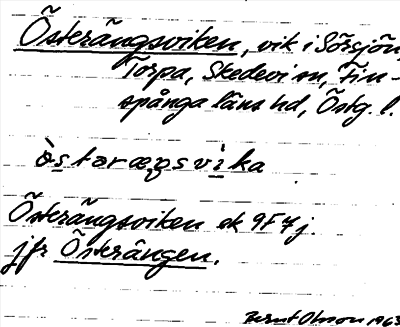 Österängsviken, vik i Sörsjön,
Torpa, Skedevi sn, Fin-
spånga läns hd, Östg. l.
òstæræŋsvika
Österängsviken ek 9F7j.
jfr Österängen.
Bernt Olsson 1963